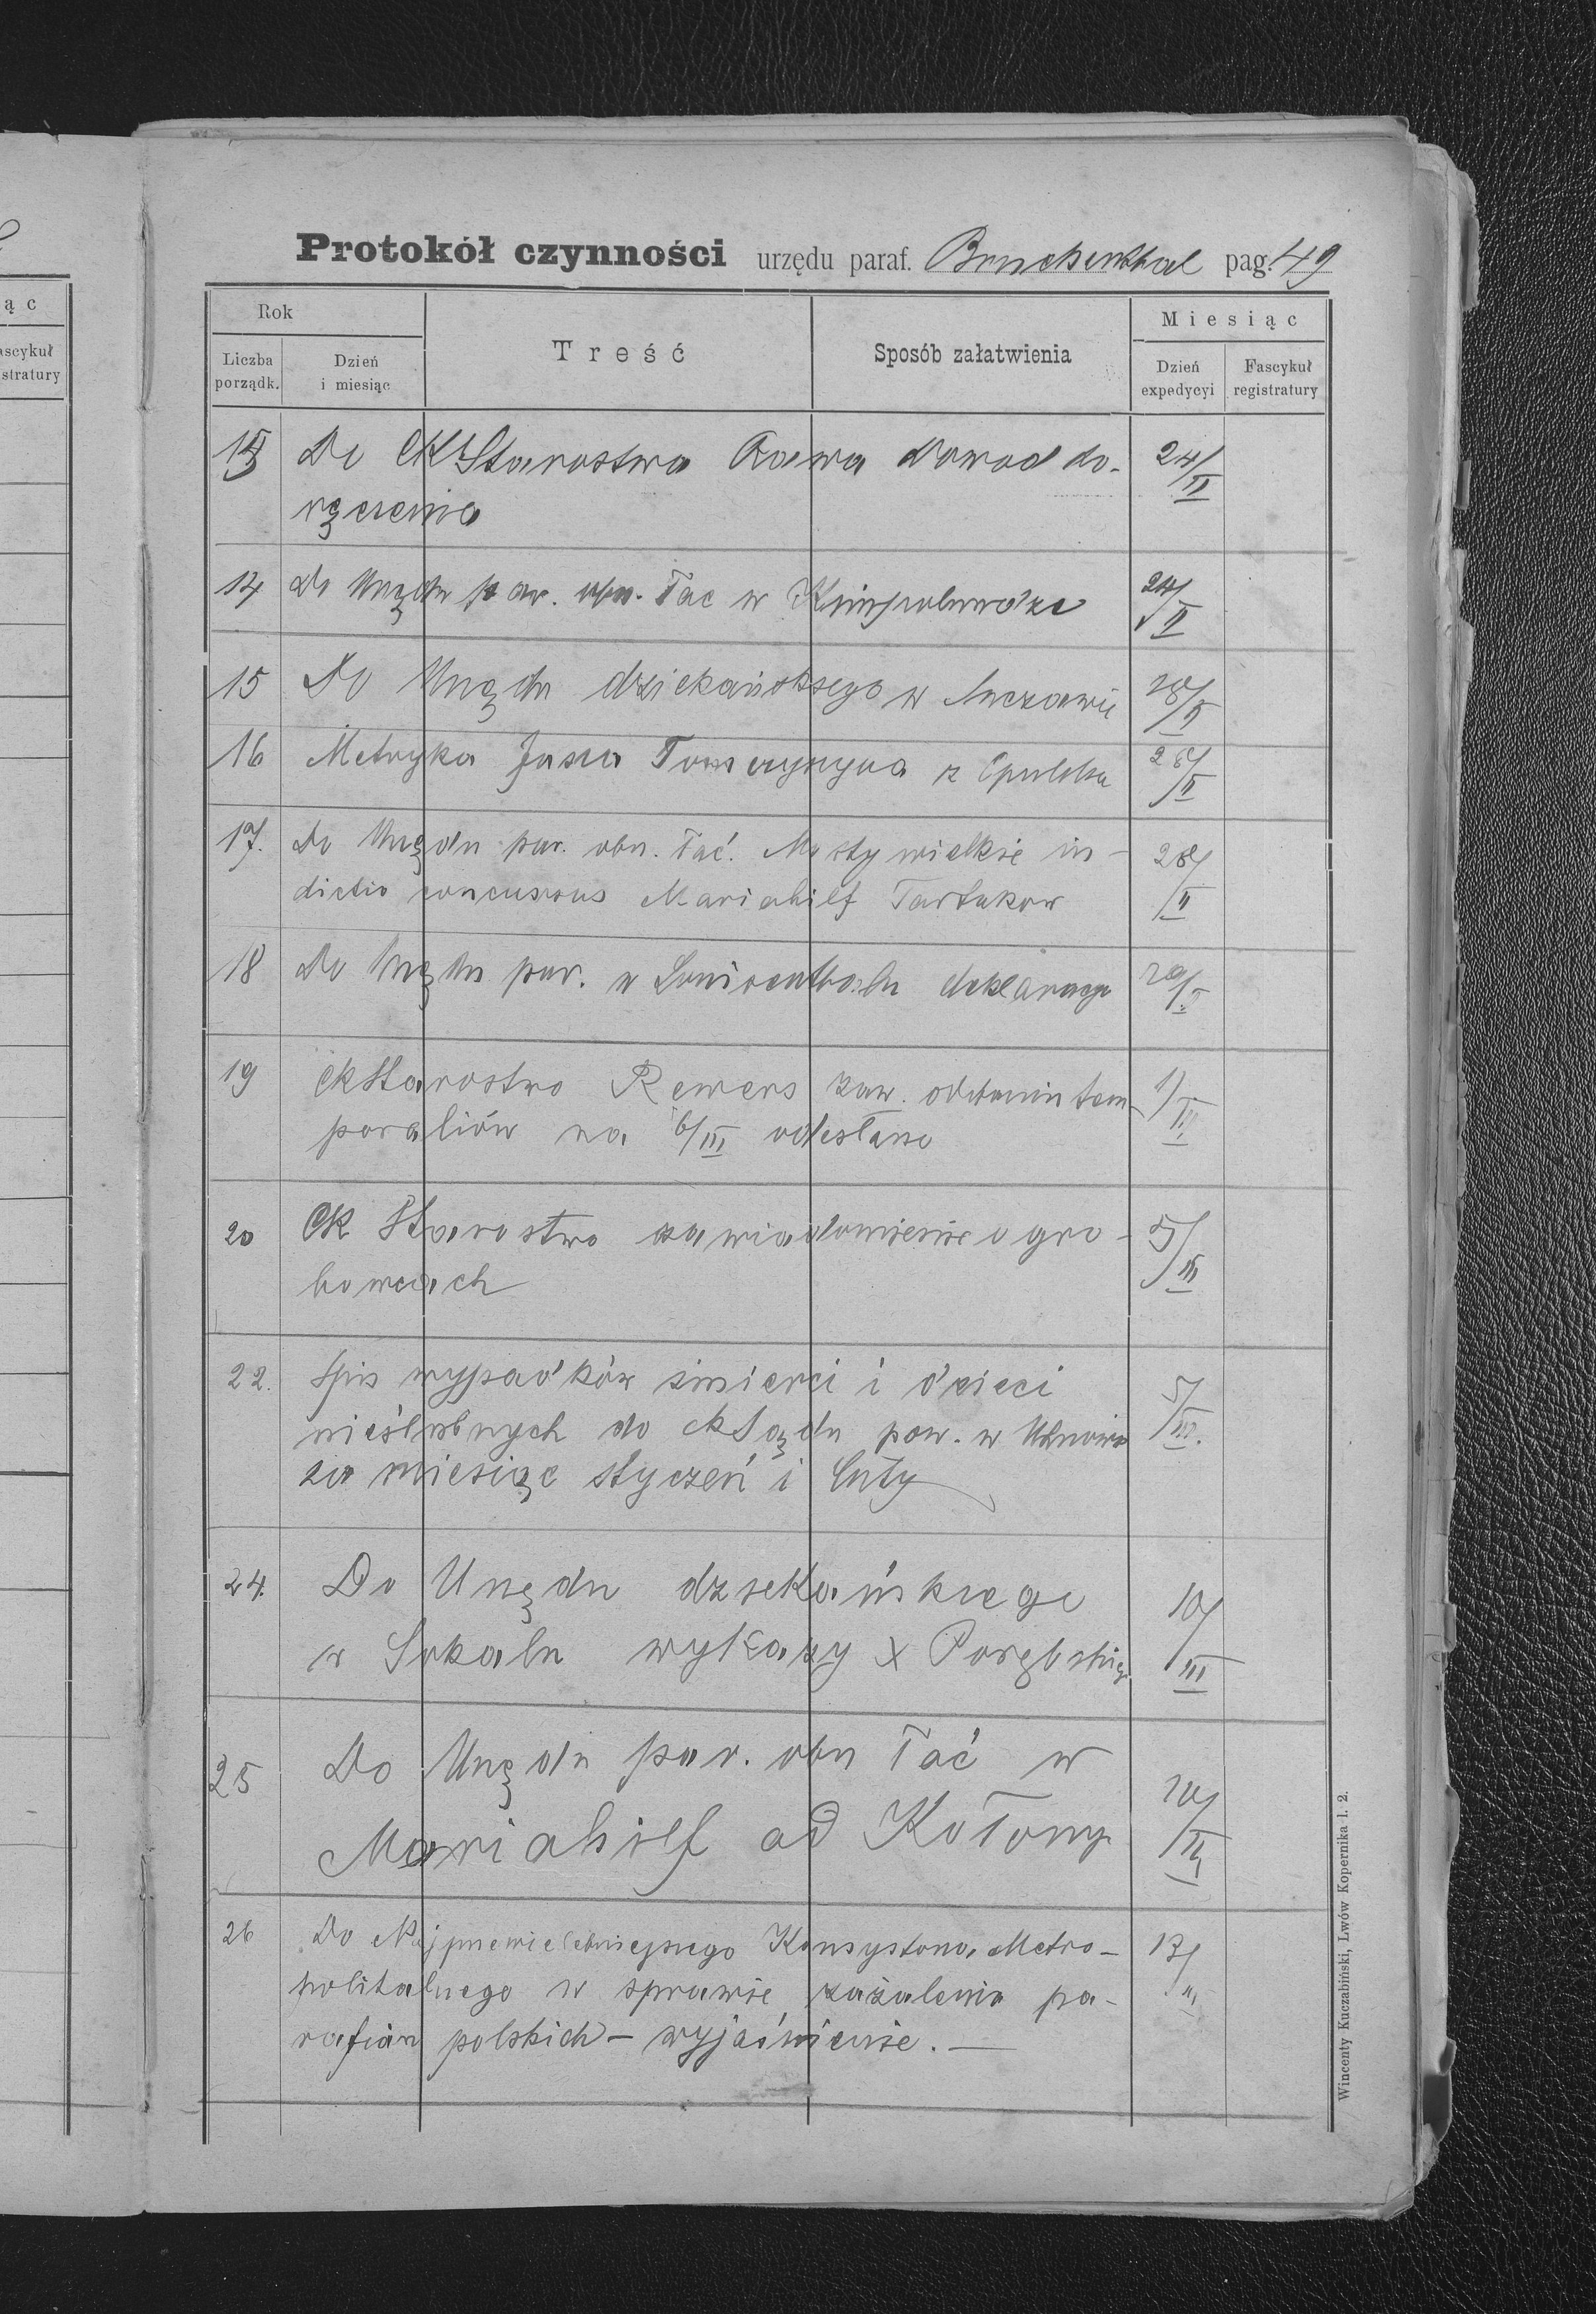 Protokół czynności urzędu paraf. Bruckenthal pag. 49
ąc
Rok
Miesiąc
Liczba porządk.
Dzień i miesiąc
Treść
Sposób załatwienia
Dzień expedycyi
Fascykuł registratury
ascykuł
stratury
13 Do CK Starostwa Rawa dowod do- 24/II
ręczenia
14 Do Urzędu par. obrz. łac w Kimpolundze 24/II
15 Do Urzędu dziekańskiego w Suczawie 28/II
16 Metryka Jana z Opulska 28/II
17. Do Urzędu par. obrz. łać. Mosty wielkie in- 28/II
dictio concursus Mariahilf Tartakow
18 Do Urzędu par. w deklaracye 29/II
19 ck Starostwo Rewers zaw. oddaniu tem- 1/III
poraliów na 6/III odesłano
20 CK Starostwo zawiadomienie o gro- 5/III
bowcach
22. Spis wypadków śmierci i dzieci
nieślubnych do ck Sądu pow. w Uhnowie 5/III.
za miesiąc styczeń i luty
24. Do Urzędu dziekańskiego 10/III
w Sokalu wykazy X Porębskiego
25 Do Urzędu par. obrz łać w
Mariahilf ad Kołomyja 10/III
26 Do Najprzewielebniejszego Konsystorza Metro- 13/III
politalnego w sprawie zażalenia pa-
rafian polskich – wyjaśnienie. —
Wincenty Kuczabiński, Lwów Kopernika l. 2.